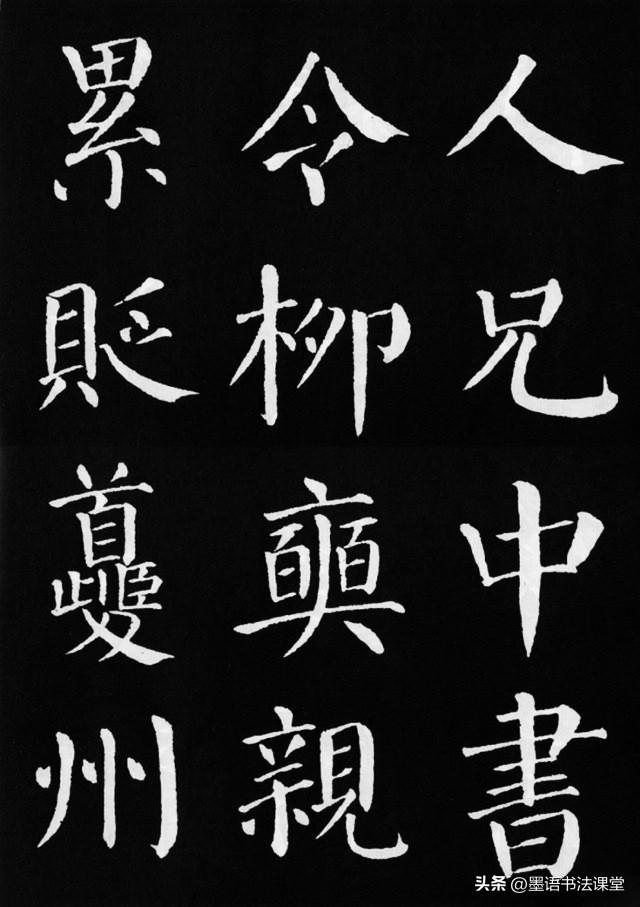 人兄中書
令柳奭親
累貶夔州
头条 @墨语书法课堂